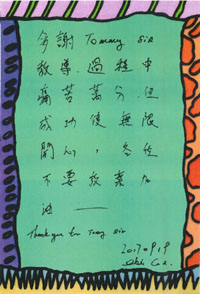 多謝 Tommy sir
教導,過程中
痛苦萬分但
成功後無限
開心,各位
不要放棄加
油——
Thank you Sir
2017.09.19